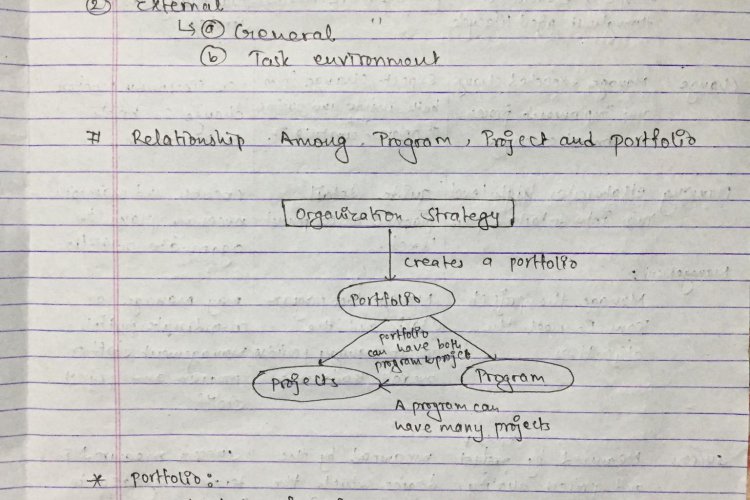 ② External
↳ ⓐ General "
ⓑ Task environment
# Relationship Among Program, Project and portfolio
Organization Strategy
creates a portfolio
Portfolio
portfolio
can have both
program & project
Projects
Program
A program can
have many projects
* portfolio: